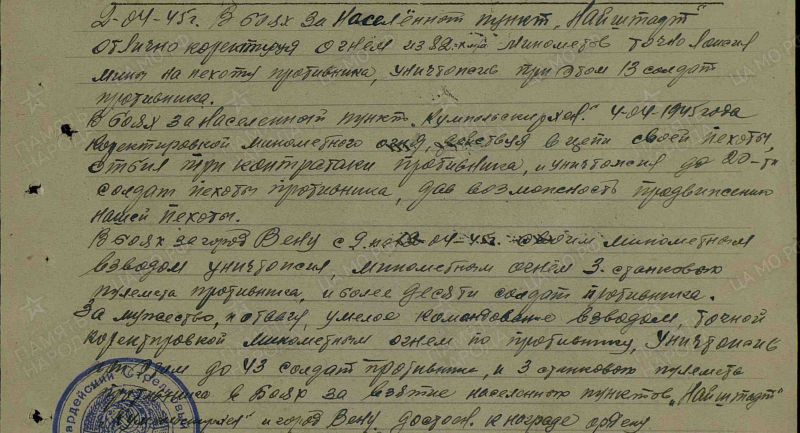 2-04-45г. В боях за населённый пункт „Найштадт"
отлично коректируя огнём из 82-х м/м миномётов точно ложил
мины на пехоту противника, уничтожив при этом 13 солдат
противника.
В боях за населенный пункт „ 4-04-1945 года
коректировкой миномётного огня, действуя в цепи своей пехоты,
отбил три контратаки противника, и уничтожил до 20-ти
солдат пехоты противника, дав возможность продвижению
нашей пехоты.
В боях за город Вену с 9 04-45г. своим минометным
взводом уничтожил, минометным огнём 3 станковых
пулемета противника, и более десяти солдат противника.
За мужество, и отвагу, умелое командование взводом, точной
коректировкой минометным огнем по противнику, уничтожив
при этом до 43 солдат противника, и 3 станковых пулемета
противника в боях за взятие населенного пунктов „Найштадт"
и город Вену достоин к награде ордену
гвардейский Стрелковый
ПАМЯТЬ НАРОДА
ЦА МО РФ